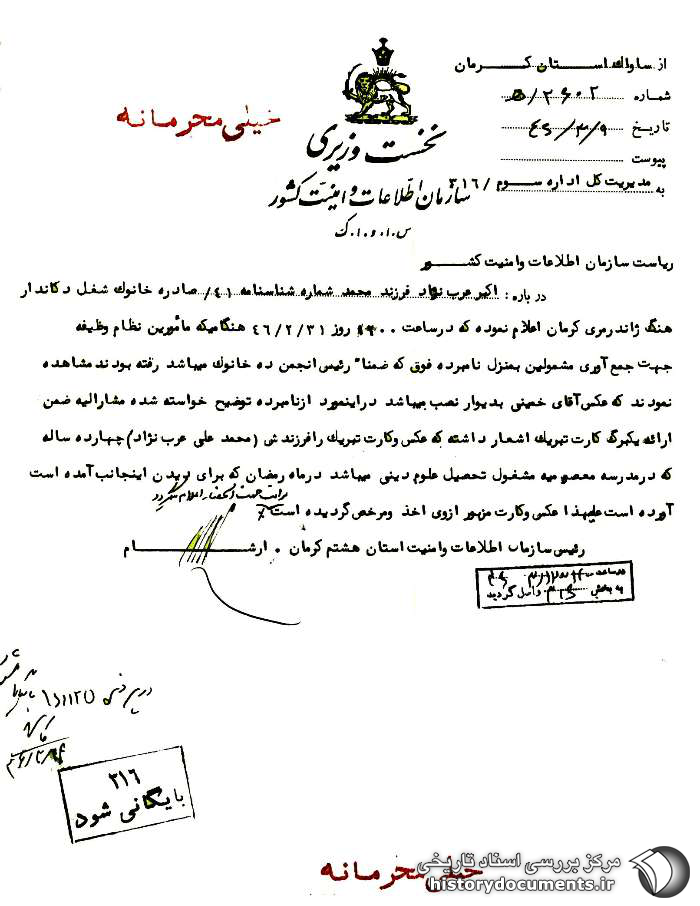 از ساواك استان كرمان
شماره ۵/۲۶۰۲
تاریخ ۴۶/۳/۹
پیوست
به مدیریت کل اداره سوم /۳۱۶
خیلی محرمانه
نخست وزیری
سازمان اطلاعات و امنیت کشور
س.ا.و.ا.ك
ریاست سازمان اطلاعات وامنیت کشور
در باره : اکبر عرب نژاد فرزند محمد شماره شناسنامه ۴۱/ صادره خانوك شغل دکاندار
هنگ ژاندرمری کرمان اعلام نموده که درساعت روز ۴۶/۲/۳۱ هنگامیکه مأمورین نظام وظیفه
جهت جمع آوری مشمولین بمنزل نامبرده فوق که ضمنا" رئیس انجمن ده خانوك میباشد رفته بودند مشاهده
نمودند که عکس آقای خمینی بدیوار نصب میباشد دراینمورد ازنامبرده توضیح خواسته شده مشارالیه ضمن
ارائه یکبرگ کارت تبریك اشعار داشته که عکس وکارت تبریك رافرزندش (محمد علی عرب نژاد)چهارده ساله
که درمدرسه معصومیه مشغول تحصیل علوم دینی میباشد درماه رمضان که برای دیدن اینجانب آمده است
آورده است علیهذا عکس وکارت مزبور ازوی اخذ ومرخص گردیده است
مراتب جهت استحضار اعلام میگردد
رئیس سازمان اطلاعات وامنیت استان هشتم کرمان . ارشام
درساعت
به بخش ۳۱۶ واصل گردید
۳۱۶
بایگانی شود
خیلی محرمانه
مرکز بررسی اسناد تاریخی
historydocuments.ir